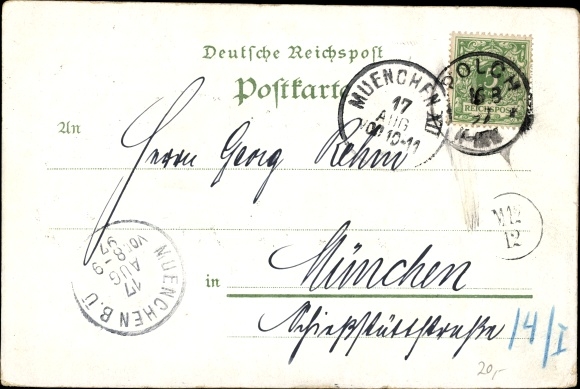 Deutsche Reichspost
Postkarte
MUENCHEN XII
17
AUG
10-11
POLCH
5
REICHSPOST
An
Herrn Georg Rehm
M12
12
MUENCHEN B.Ü
17
AUG
8-9
97
in
München
Schießstättstraße 14/I
20,-